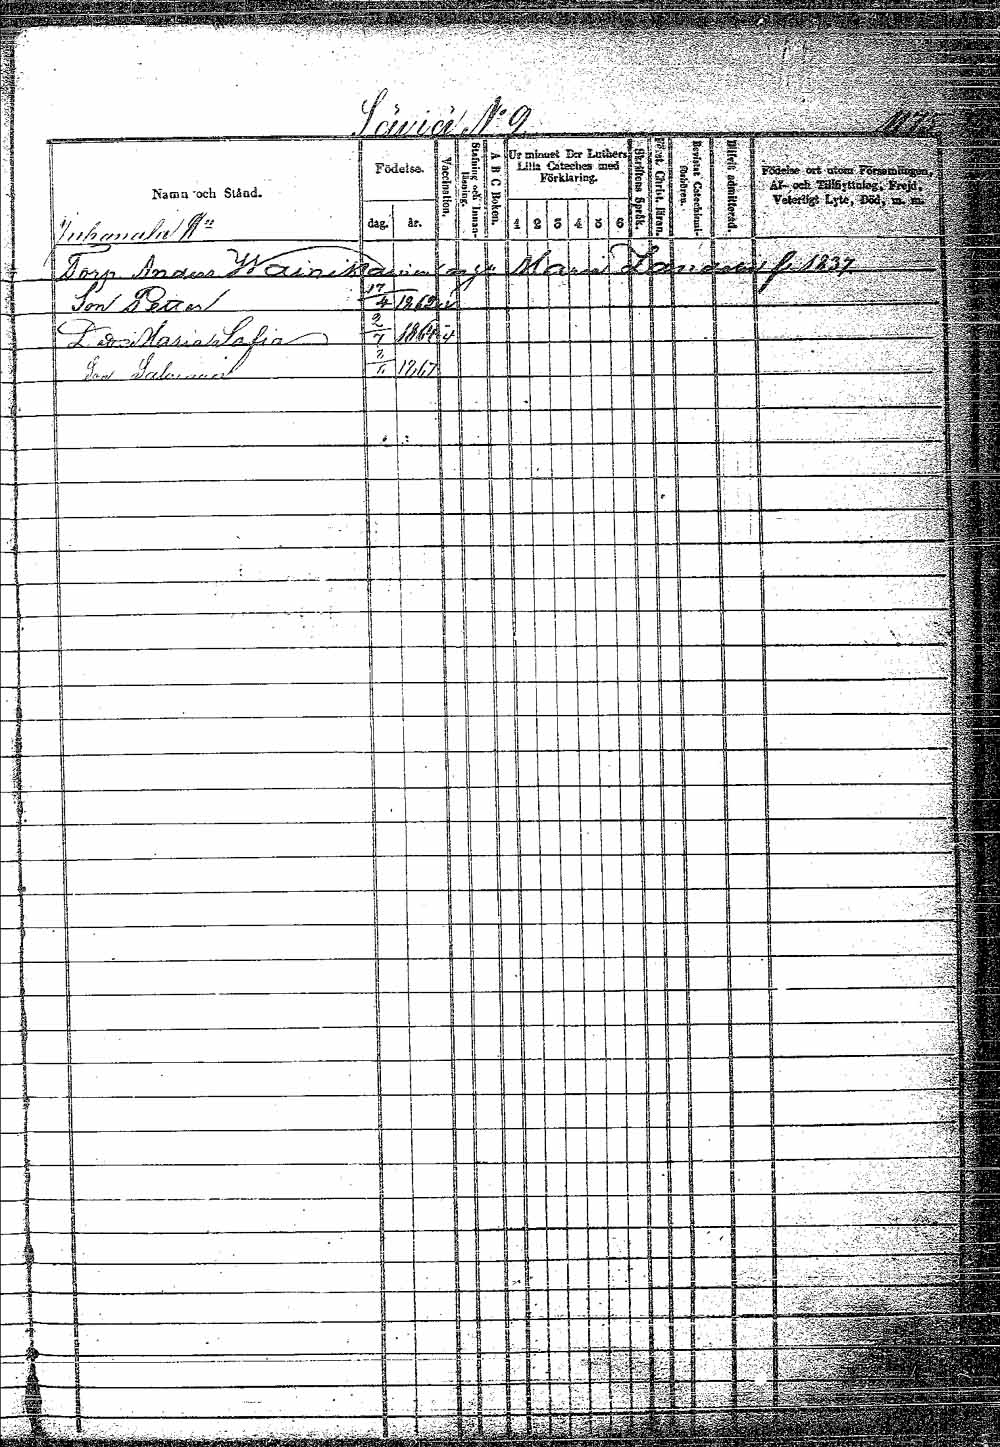 Säviä N:o 9
Namn och Stånd.
Födelse.
dag. år.
Vaccination.
Stafning och Innan-läsning.
A B C Boken.
Ur minnet Der Luthers
Lilla Cateches med
Förklaring.
1 2 3 4 5 6
Skriftens Språk.
Först. Christ. läran.
Bevistat Catechismi-förhören.
Blifvit admitterad.
Födelse ort utom Församlingen,
Af- och Tillflyttning, Frejd,
Veterligt Lyte, Död, m. m.
Torp Anders Wainikainen Maria f. 1837
Son Petter 17/4 1862 v
D Maria Sofia 2/7 1864 v
Son Salomon 1867